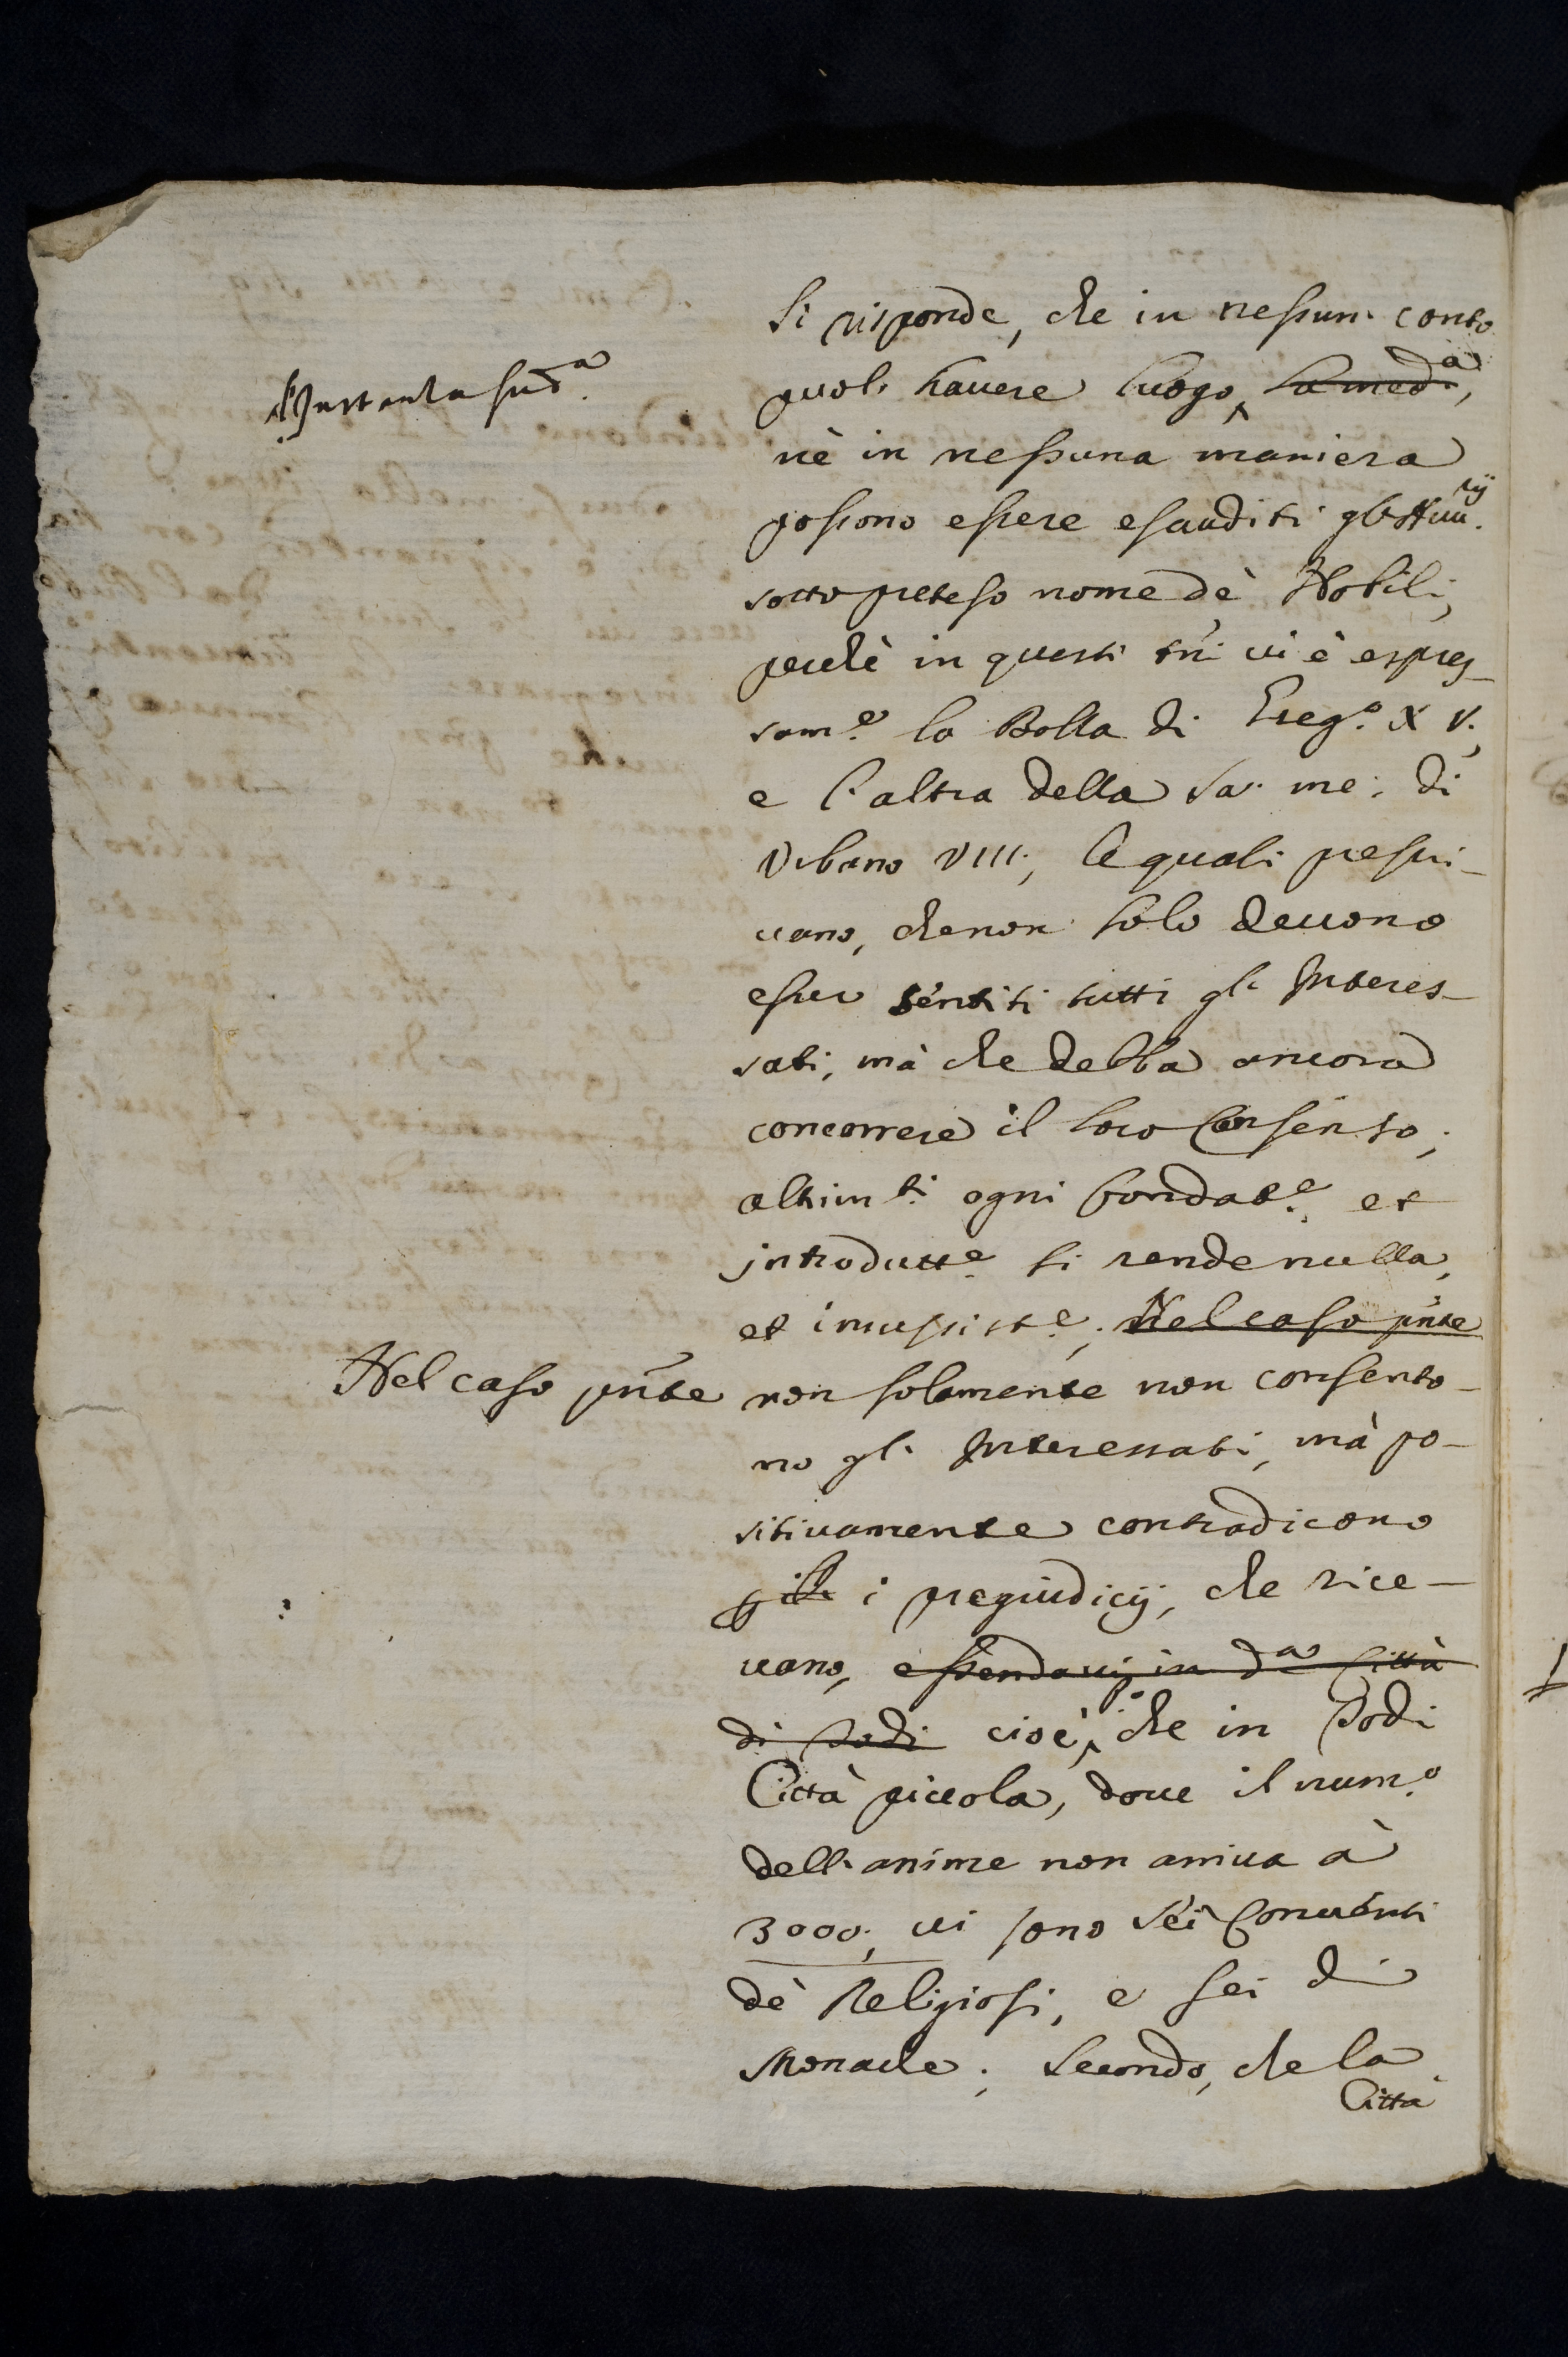 Si risponde, che in nessun conto
l'Instanza sud.a
puol' havere luogo, la med.a,
nè in nessuna maniera
possono essere esauditi gl'Auu.rij
sotto preteso nome dè Nobili,
perchè in questi t'ni vi è espres-
sam.e la Bolla di Greg.o XV.,
e l'altra della Sa: me: di
Vrbano VIII., le quali prescri-
uano, che non solo deuono
esser sentiti tutti gl'Interes-
sati, mà che debba ancora
concorrere il loro Consenso,
altrim.ti ogni fondat.e et
introdutt.e si rende nulla,
et insussist.e; Nel caso pn̄te
Nel caso pn̄te
non solamente non consento-
no gl'Interessati, mà po-
sitiuamente contradicono
i pregiudicij, che rice-
uano, essendoui in d.a Città
di Todi cioè, che in Todi
Città piccola, doue il num.o
dell'anime non arriua à
3000., vi sono sei Conuenti
dè Religiosi, e sei di
Monache; Secondo, che la
Città